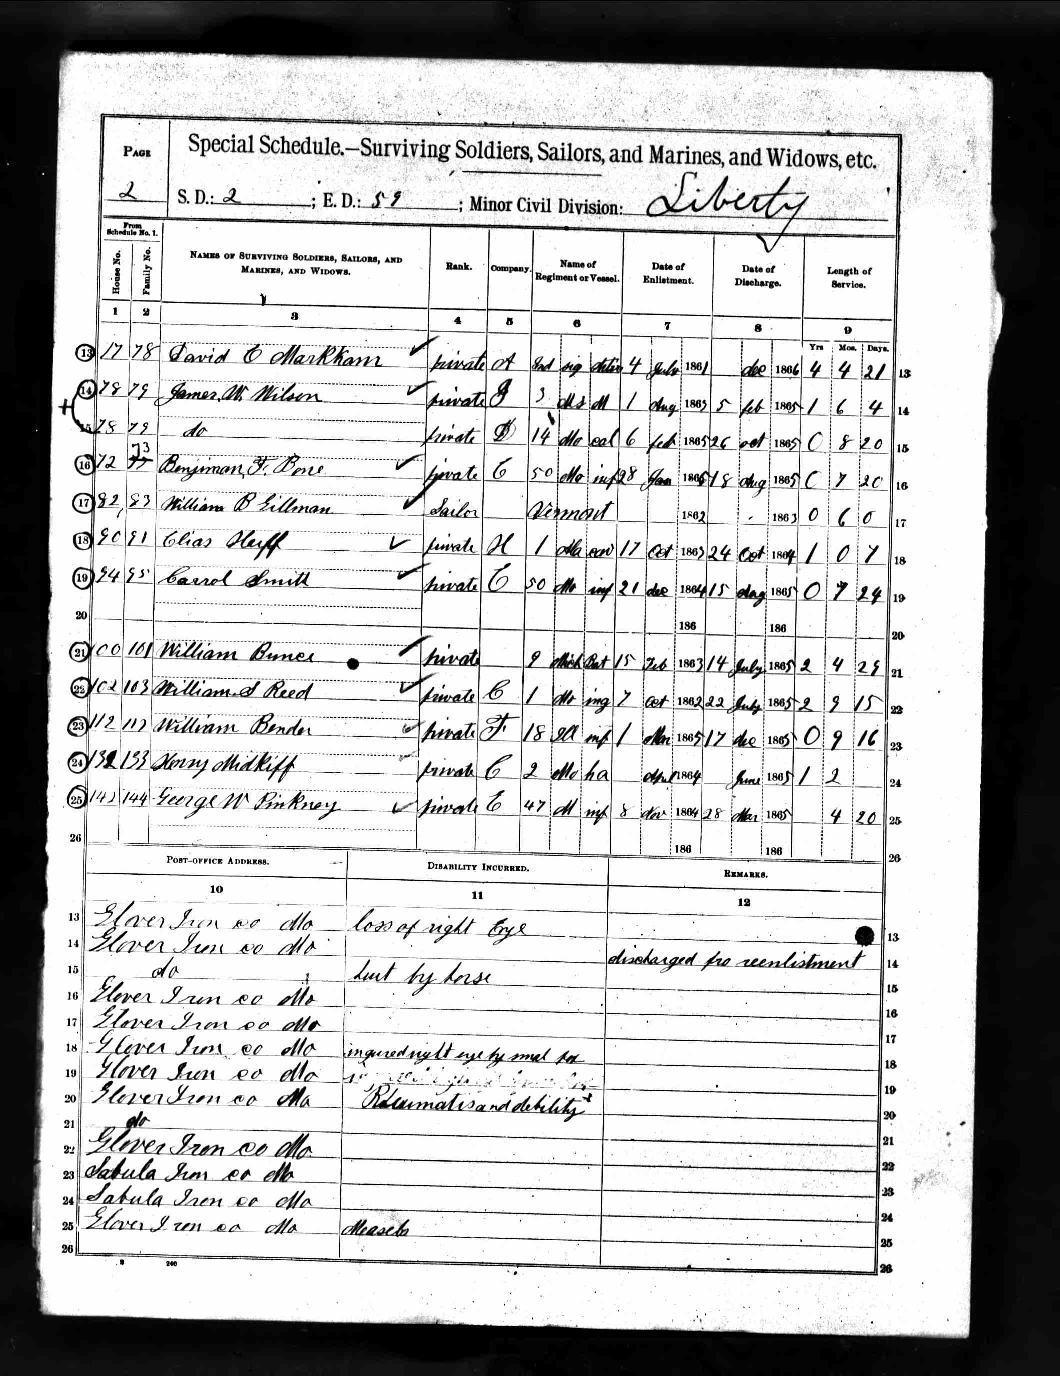 PAGE
2
Special Schedule.—Surviving Soldiers, Sailors, and Marines, and Widows, etc.
S. D.: 2 ; E. D.: 59 ; Minor Civil Division: Liberty
From Schedule No. 1.
House No. Family No. NAMES OF SURVIVING SOLDIERS, SAILORS, AND MARINES, AND WIDOWS. Rank. Company. Name of Regiment or Vessel. Date of Enlistment. Date of Discharge. Length of Service.
1 2 3 4 5 6 7 8 9
Yrs Mos. Days.
13 17 78 David C Markham private A sig 4 July 1861 dec 1866 4 4 21 13
14 78 79 James W. Wilson private G 3 Ms M 1 Aug 1863 5 feb 1865 1 6 4 14
15 78 79 do private D 14 Mo cal 6 feb 1865 26 oct 1865 0 8 20 15
16 72 73 Benjiman F. Bone private C 50 Mo inf 28 Jan 1865 18 Aug 1865 0 7 20 16
17 82 83 William B Gillman Sailor Vermont 1862 1863 0 6 0 17
18 90 91 Elias private H 1 cav 17 Oct 1863 24 Oct 1864 1 0 7 18
19 94 95 Carrol Smith private C 50 Mo inf 21 dec 1864 15 Aug 1865 0 7 24 19
20 186 186 20
21 100 101 William Bunce private 9 Mich Bat 15 Feb 1863 14 July 1865 2 4 29 21
22 102 103 William S Reed private C 1 Mo ing 7 Oct 1862 22 July 1865 2 9 15 22
23 112 113 William Bender private F 18 Ill inf 1 Mar 1865 17 dec 1865 0 9 16 23
24 132 133 Henry Midkiff private C 2 Mo ha Apr 1864 June 1865 1 2 24
25 143 144 George W Pinkney private E 47 M inf 8 Nov 1864 28 Mar 1865 4 20 25
26 186 186 26
POST-OFFICE ADDRESS. DISABILITY INCURRED. REMARKS.
10 11 12
13 Glover Iron co Mo loss of right Eye 13
14 Glover Iron co Mo discharged fro reenlistment 14
15 do hurt by horse 15
16 Glover Iron co Mo 16
17 Glover Iron co Mo 17
18 Glover Iron co Mo ingured right eye by smal pox 18
19 Glover Iron co Mo 19
20 Glover Iron co Mo Rheumatis and debility 20
21 do 21
22 Glover Iron co Mo 22
23 Sabula Iron co Mo 23
24 Sabula Iron co Mo 24
25 Glover Iron co Mo Measels 25
26 26